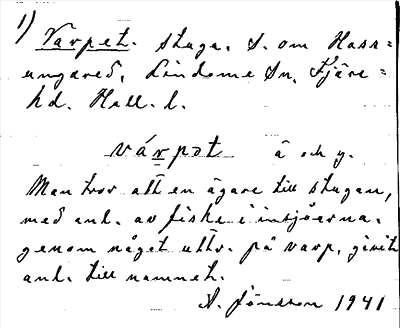 1) Varpet. stuga. S. om Hass=
ungared, Lindome sn, Fjäre=
hd. Hall. l.
várpɔt ä och y.
Man tror att en ägare till stugan,
med anl. av fiske i insjöarna.
genom något uttr. på varp, givit
anl. till namnet.
A. Jönsson 1941